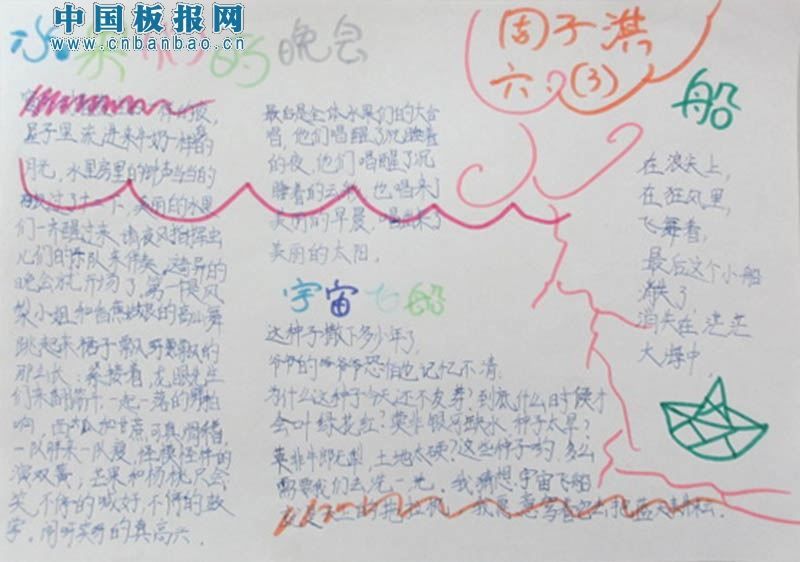 中国板报网
www.cnbanbao.cn
水果们的晚会
周子淇
六.(3)
屋子里流进来牛奶一样的
月光,水果房里的钟声当当的
敲过了十二下,美丽的水果
们一齐醒过来,请夜风指挥虫
儿们的乐队来伴奏,这奇异的
晚会就开场了,第一提凤
梨小姐和香蕉姑娘的高山舞
跳起来裙子飘飘的
那么长;紧接着,龙眼先生
们来翻筋斗,一起一落的劈拍
响,西瓜和甘蔗可真滑稽,
一队胖来一队瘦,怪模怪样的
演双簧,芒果和杨桃只会
笑,不停的喊好,不停的鼓
掌,闹呀笑呀的真高兴.
最后是全体水果们的大合
唱,他们唱醒了沉睡着
的夜,他们唱醒了沉
睡着的云朵,也唱来了
美丽的早晨,唱出来了
美丽的太阳.
宇宙飞船
这种子撒下多少年了,
爷爷的爷爷恐怕也记忆不清.
为什么这种子今天还不发芽?到底什么时候才
会叶绿花红?莫非银河缺水,种子太旱?
莫非牛郎无犁,土地太硬?这些种子哟,多么
需要我们去浇一浇.我猜想:宇宙飞船
船
在浪尖上,
在狂风里,
飞舞着,
最后这个小船
消失了,
消失在茫茫
大海中.